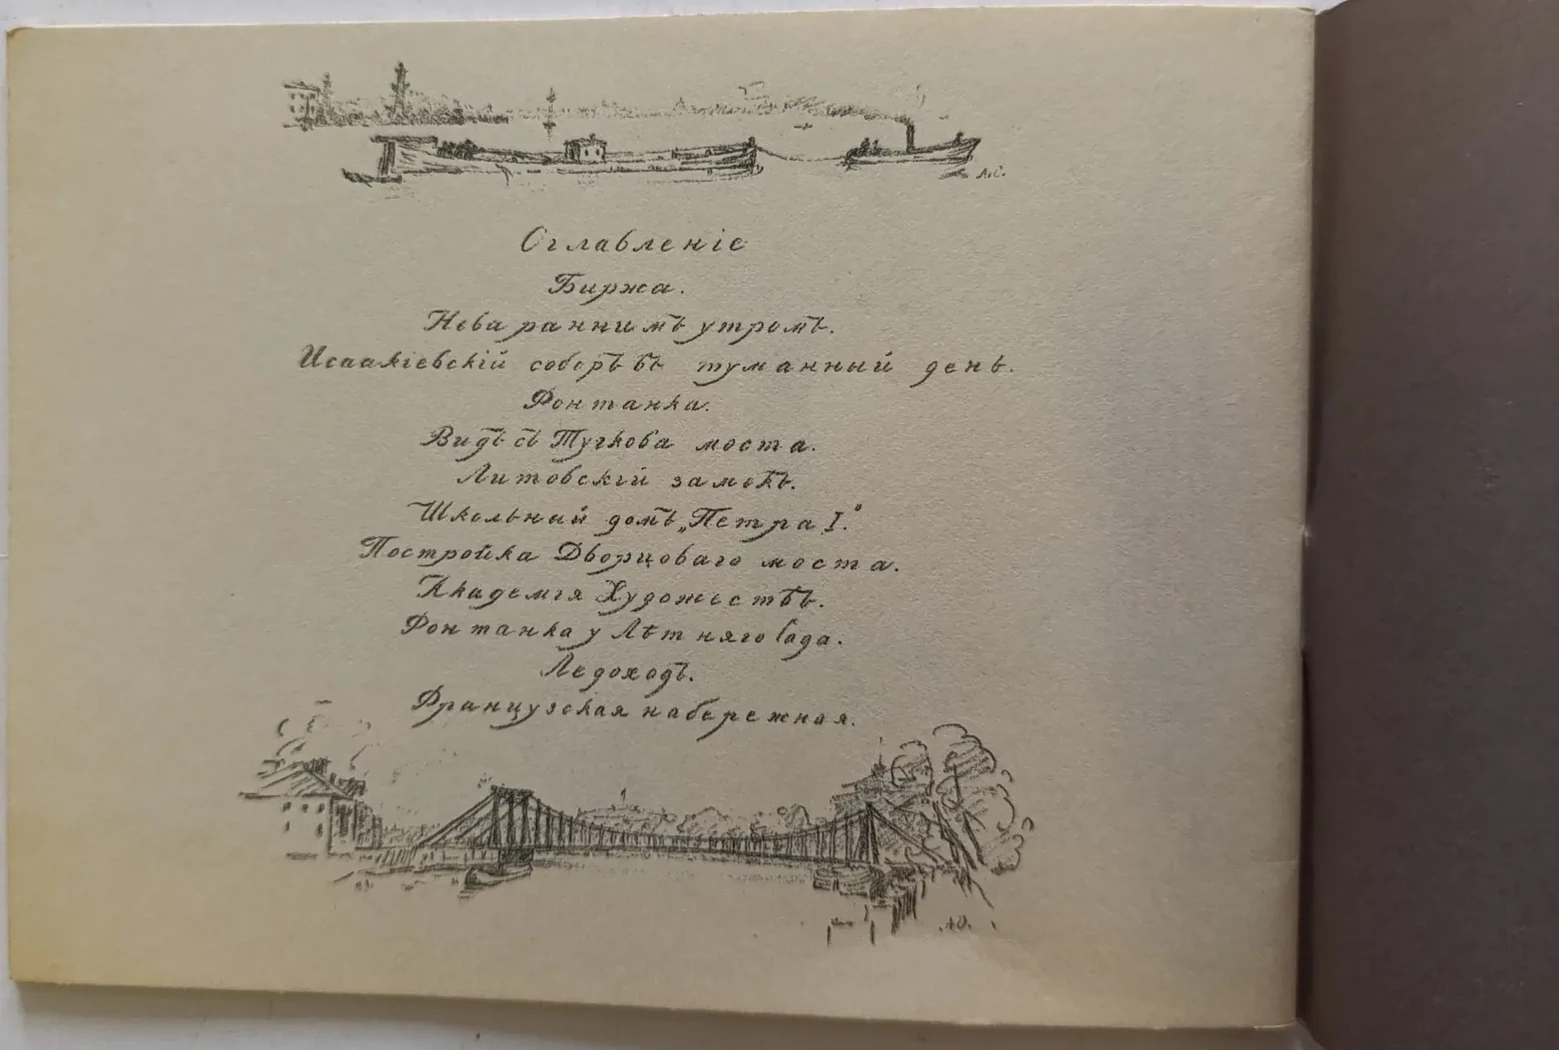 А.О.
Оглавленіе
Биржа.
Нева раннимъ утромъ.
Исаакіевскій соборъ въ туманный день.
Фонтанка.
Видъ съ Тучкова моста.
Литовскій замокъ.
Школьный домъ „Петра I.“
Постройка Дворцоваго моста.
Академія Художествъ.
Фонтанка у Лѣтняго Сада.
Ледоходъ.
Французская набережная.
АО.